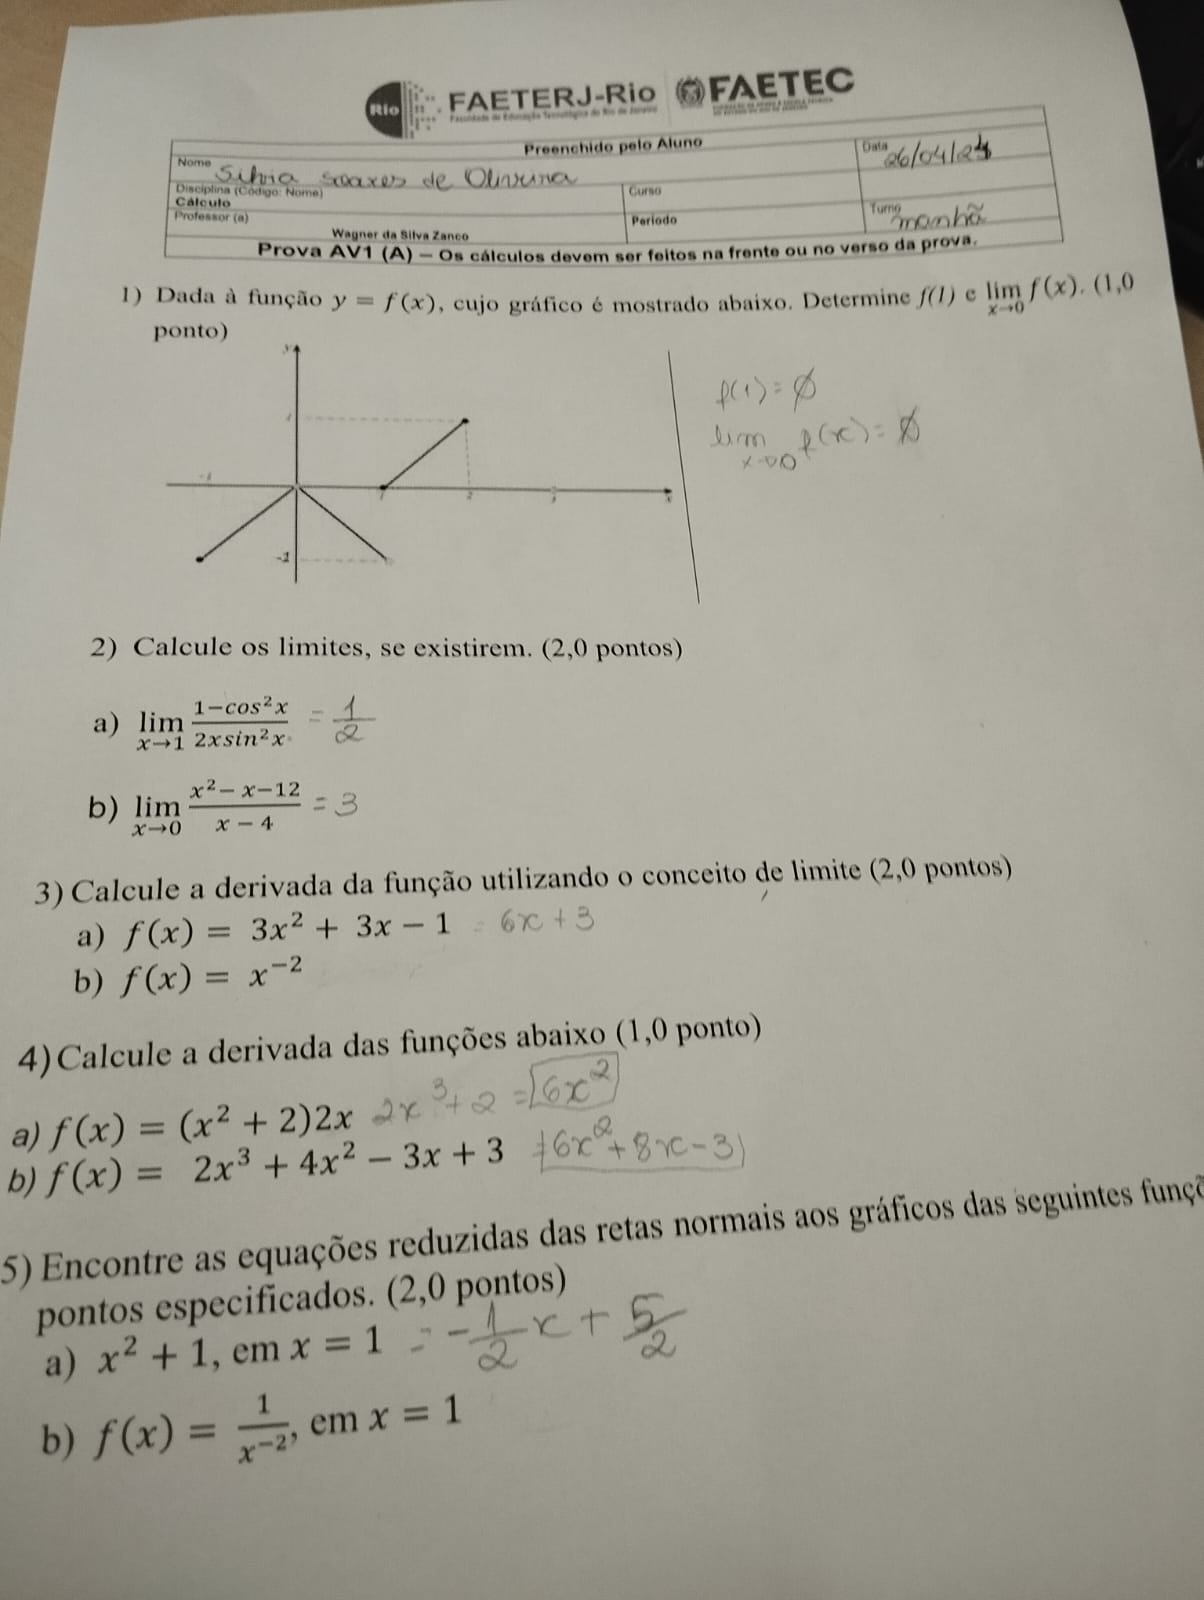 Rio FAETERJ-Rio FAETEC
Faculdade de Educação Tecnológica do Rio de Janeiro
Preenchido pelo Aluno
Nome Silvia Soares de Oliveira
Data 26/04/24
Disciplina (Código: Nome)
Cálculo
Curso
Professor (a)
Wagner da Silva Zanco
Período
Turno manhã
Prova AV1 (A) – Os cálculos devem ser feitos na frente ou no verso da prova.
1) Dada à função y = f(x), cujo gráfico é mostrado abaixo. Determine f(1) e lim x→0 f(x). (1,0
ponto)
y
1
-1 1 2 3 x
-1
f(1) = ∅
lim x→0 f(x) = ∅
2) Calcule os limites, se existirem. (2,0 pontos)
a) lim x→1 (1−cos²x)/(2xsin²x) = 1/2
b) lim x→0 (x²−x−12)/(x−4) = 3
3) Calcule a derivada da função utilizando o conceito de limite (2,0 pontos)
a) f(x) = 3x² + 3x − 1 = 6x + 3
b) f(x) = x⁻²
4) Calcule a derivada das funções abaixo (1,0 ponto)
a) f(x) = (x² + 2)2x 2x³ + 2 = 6x²
b) f(x) = 2x³ + 4x² − 3x + 3 = 6x² + 8x − 3
5) Encontre as equações reduzidas das retas normais aos gráficos das seguintes funçõ
pontos especificados. (2,0 pontos)
a) x² + 1, em x = 1 = −1/2 x + 5/2
b) f(x) = 1/x⁻², em x = 1